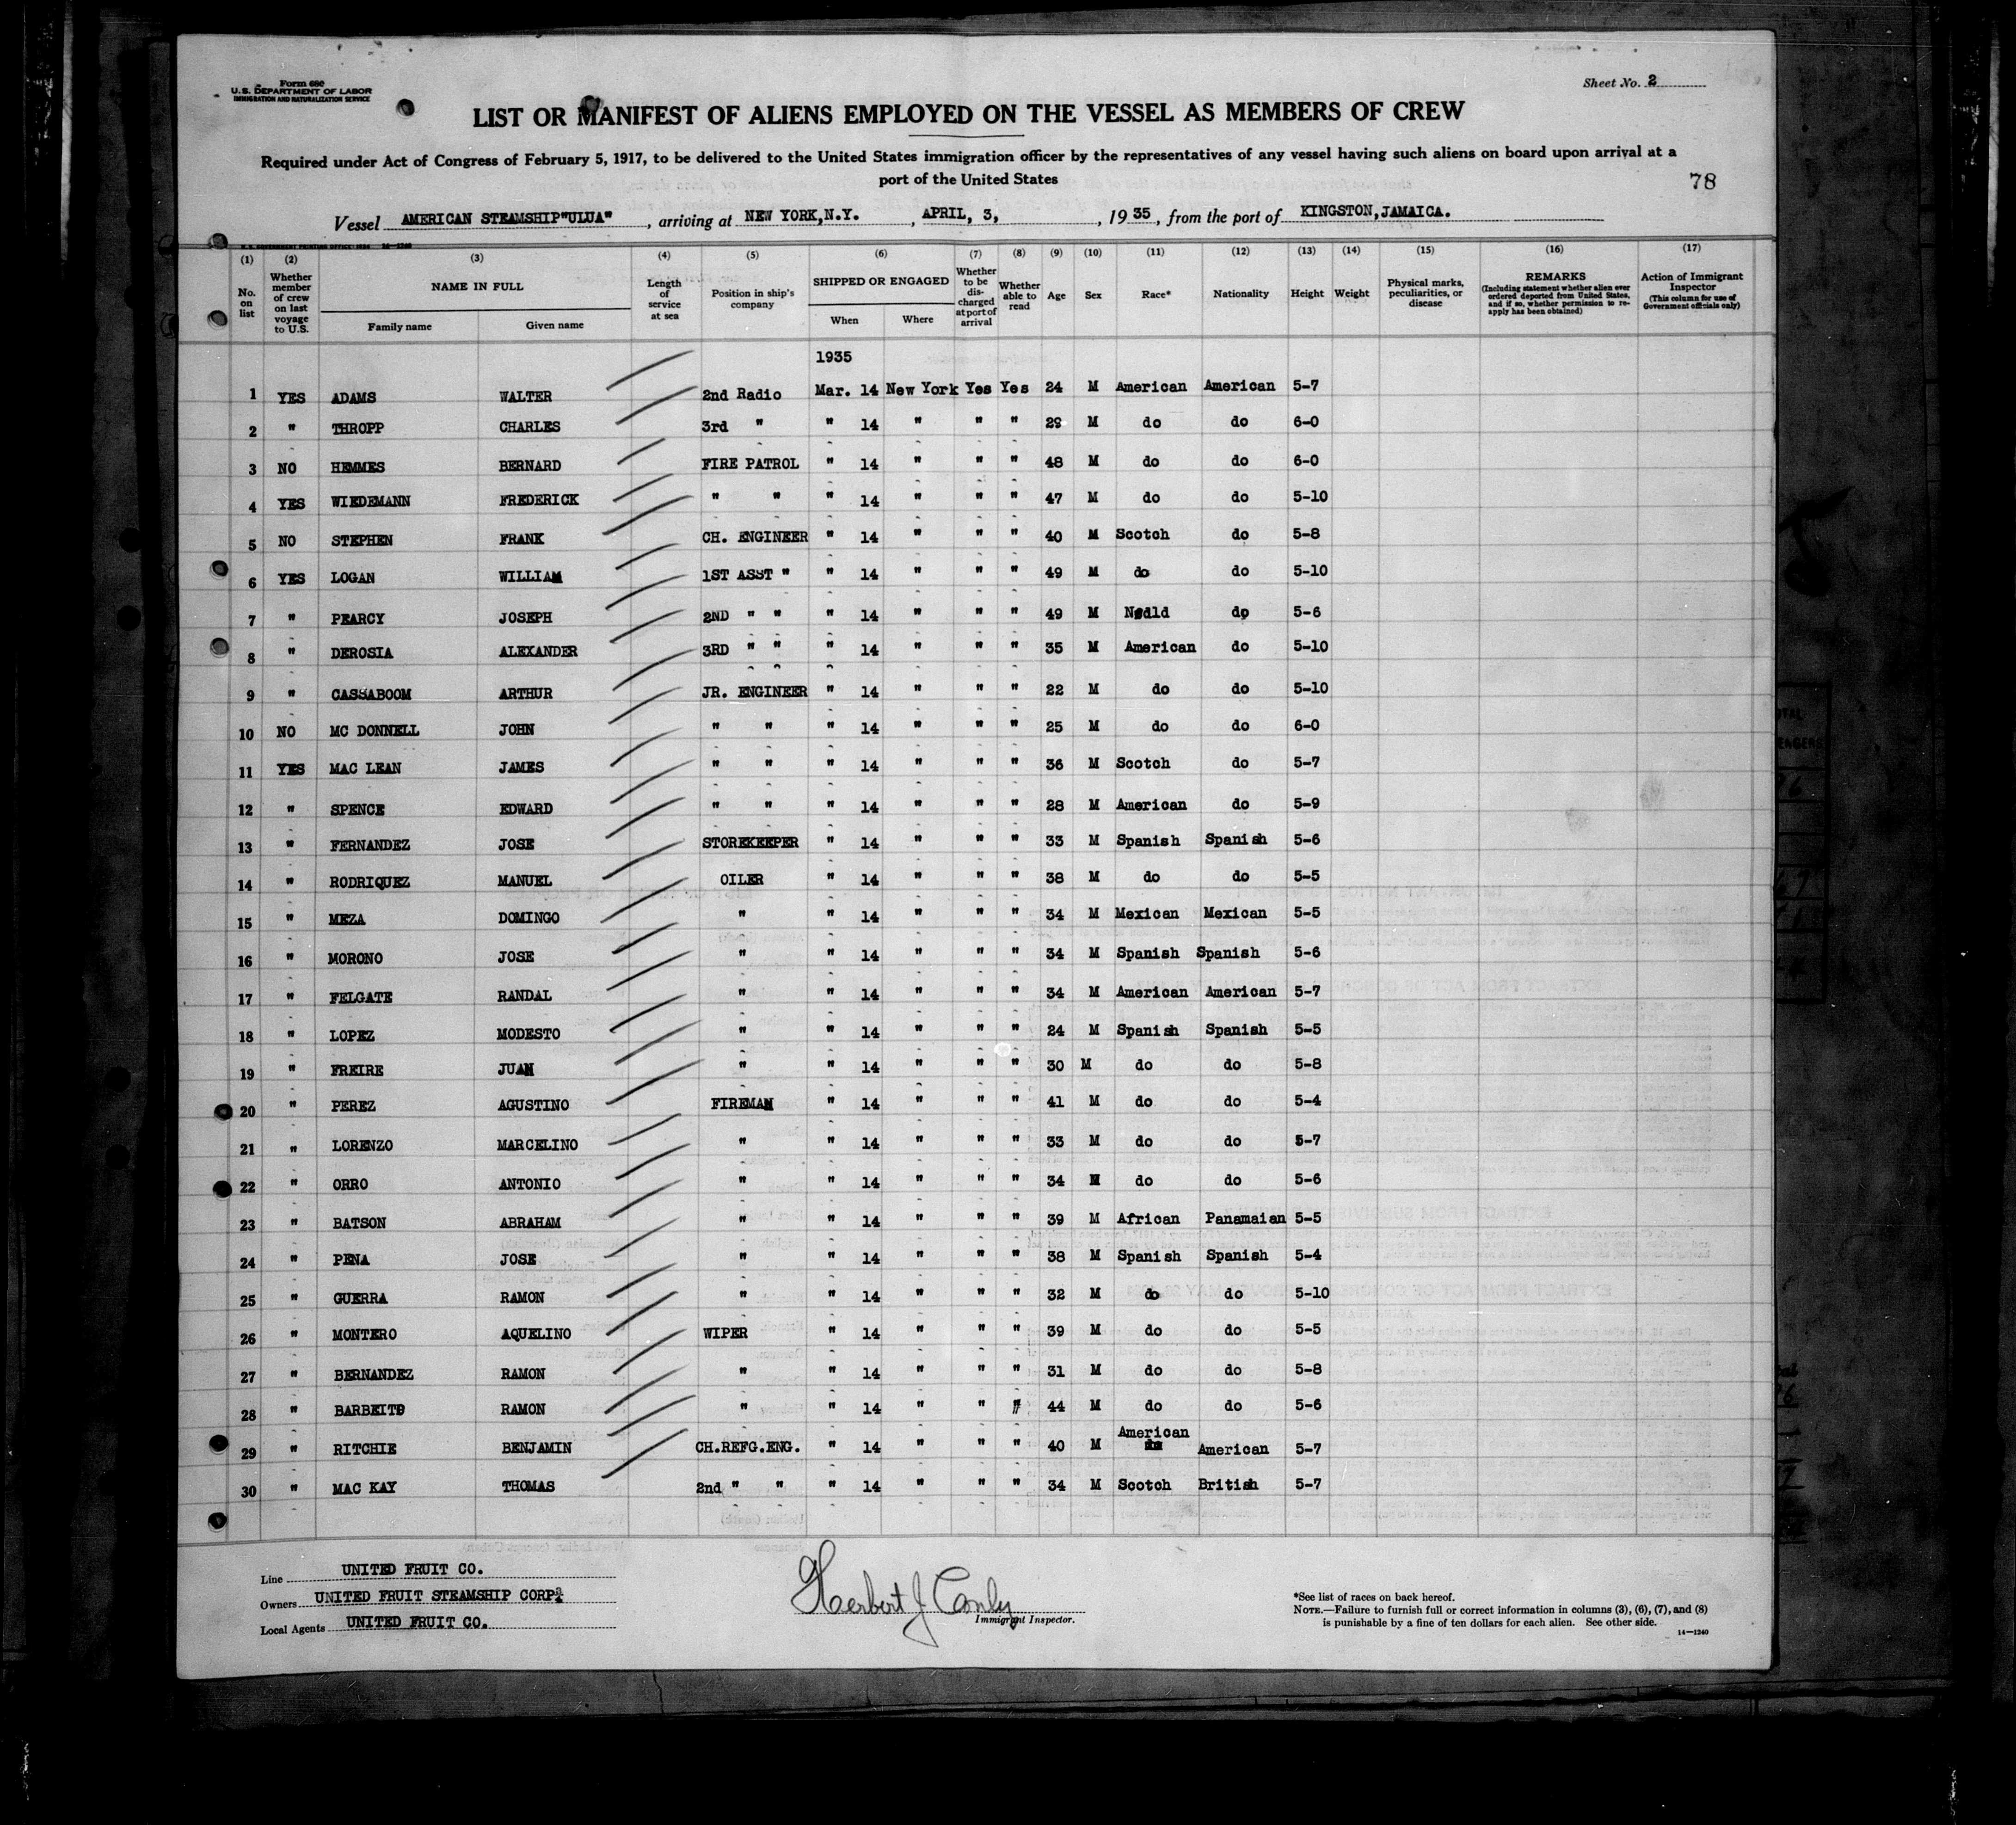 Form 680
U.S. DEPARTMENT OF LABOR
IMMIGRATION AND NATURALIZATION SERVICE
Sheet No. 2
LIST OR MANIFEST OF ALIENS EMPLOYED ON THE VESSEL AS MEMBERS OF CREW
Required under Act of Congress of February 5, 1917, to be delivered to the United States immigration officer by the representatives of any vessel having such aliens on board upon arrival at a
port of the United States
78
Vessel AMERICAN STEAMSHIP"ULUA", arriving at NEW YORK,N.Y., APRIL, 3, , 19 35, from the port of KINGSTON,JAMAICA.
(1) (2) (3) (4) (5) (6) (7) (8) (9) (10) (11) (12) (13) (14) (15) (16) (17)
No. on list
Whether member of crew on last voyage to U.S.
NAME IN FULL
Family name Given name
Length of service at sea
Position in ship's company
SHIPPED OR ENGAGED
When Where
Whether to be discharged at port of arrival
Whether able to read
Age Sex Race* Nationality Height Weight
Physical marks, peculiarities, or disease
REMARKS
(Including statement whether alien ever ordered deported from United States, and if so, whether permission to re-apply has been obtained)
Action of Immigrant Inspector
(This column for use of Government officials only)
1935
1 YES ADAMS WALTER 2nd Radio Mar. 14 New York Yes Yes 24 M American American 5-7
2 " THROPP CHARLES 3rd " " 14 " " " 29 M do do 6-0
3 NO HEMMES BERNARD FIRE PATROL " 14 " " " 48 M do do 6-0
4 YES WIEDEMANN FREDERICK " " " 14 " " " 47 M do do 5-10
5 NO STEPHEN FRANK CH. ENGINEER " 14 " " " 40 M Scotch do 5-8
6 YES LOGAN WILLIAM 1ST ASST " " 14 " " " 49 M do do 5-10
7 " PEARCY JOSEPH 2ND " " " 14 " " " 49 M do 5-6
8 " DEROSIA ALEXANDER 3RD " " " 14 " " " 35 M American do 5-10
9 " CASSABOOM ARTHUR JR. ENGINEER " 14 " " " 22 M do do 5-10
10 NO MC DONNELL JOHN " " " 14 " " " 25 M do do 6-0
11 YES MAC LEAN JAMES " " " 14 " " " 36 M Scotch do 5-7
12 " SPENCE EDWARD " " " 14 " " " 28 M American do 5-9
13 " FERNANDEZ JOSE STOREKEEPER " 14 " " " 33 M Spanish Spanish 5-6
14 " RODRIQUEZ MANUEL OILER " 14 " " " 38 M do do 5-5
15 " MEZA DOMINGO " " 14 " " " 34 M Mexican Mexican 5-5
16 " MORONO JOSE " " 14 " " " 34 M Spanish Spanish 5-6
17 " FELGATE RANDAL " " 14 " " " 34 M American American 5-7
18 " LOPEZ MODESTO " " 14 " " " 24 M Spanish Spanish 5-5
19 " FREIRE JUAN " " 14 " " " 30 M do do 5-8
20 " PEREZ AGUSTINO FIREMAN " 14 " " " 41 M do do 5-4
21 " LORENZO MARCELINO " " 14 " " " 33 M do do 5-7
22 " ORRO ANTONIO " " 14 " " " 34 M do do 5-6
23 " BATSON ABRAHAM " " 14 " " " 39 M African Panamaian 5-5
24 " PENA JOSE " " 14 " " " 38 M Spanish Spanish 5-4
25 " GUERRA RAMON " " 14 " " " 32 M do do 5-10
26 " MONTERO AQUELINO WIPER " 14 " " " 39 M do do 5-5
27 " BERNANDEZ RAMON " " 14 " " " 31 M do do 5-8
28 " BARBEITO RAMON " " 14 " " " 44 M do do 5-6
29 " RITCHIE BENJAMIN CH.REFG.ENG. " 14 " " " 40 M American American 5-7
30 " MAC KAY THOMAS 2nd " " " 14 " " " 34 M Scotch British 5-7
Line UNITED FRUIT CO.
Owners UNITED FRUIT STEAMSHIP CORP.
Local Agents UNITED FRUIT CO.
Herbert J
Immigrant Inspector.
*See list of races on back hereof.
NOTE.—Failure to furnish full or correct information in columns (3), (6), (7), and (8)
is punishable by a fine of ten dollars for each alien. See other side.
14—1240